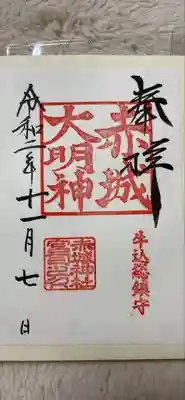 奉拝
牛込総鎮守
赤城
大明神
赤城神社
令和二年十一月七日